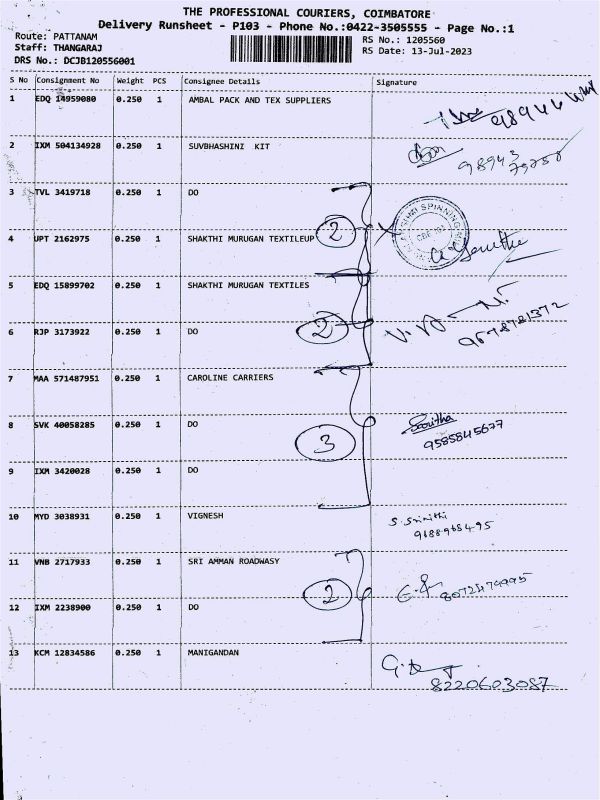 THE PROFESSIONAL COURIERS, COIMBATORE
Delivery Runsheet - P103 - Phone No.:0422-3505555 - Page No.:1
Route: PATTANAM RS No.: 1205560
Staff: THANGARAJ RS Date: 13-Jul-2023
DRS No.: DCJB120556001
S No Consignment No Weight PCS Consignee Details Signature
1 EDQ 14959080 0.250 1 AMBAL PACK AND TEX SUPPLIERS
2 IXM 504134928 0.250 1 SUVBHASHINI KIT
98943
79250
3 TVL 3419718 0.250 1 DO
2
4 UPT 2162975 0.250 1 SHAKTHI MURUGAN TEXTILEUP
5 EDQ 15899702 0.250 1 SHAKTHI MURUGAN TEXTILES
6 RJP 3173922 0.250 1 DO 2
7 MAA 571487951 0.250 1 CAROLINE CARRIERS
8 SVK 40058285 0.250 1 DO
3 9585845677
9 IXM 3420028 0.250 1 DO
10 MYD 3038931 0.250 1 VIGNESH S. Srinithi
9688968495
11 VNB 2717933 0.250 1 SRI AMMAN ROADWASY
2
12 IXM 2238900 0.250 1 DO
13 KCM 12834586 0.250 1 MANIGANDAN
8220603087